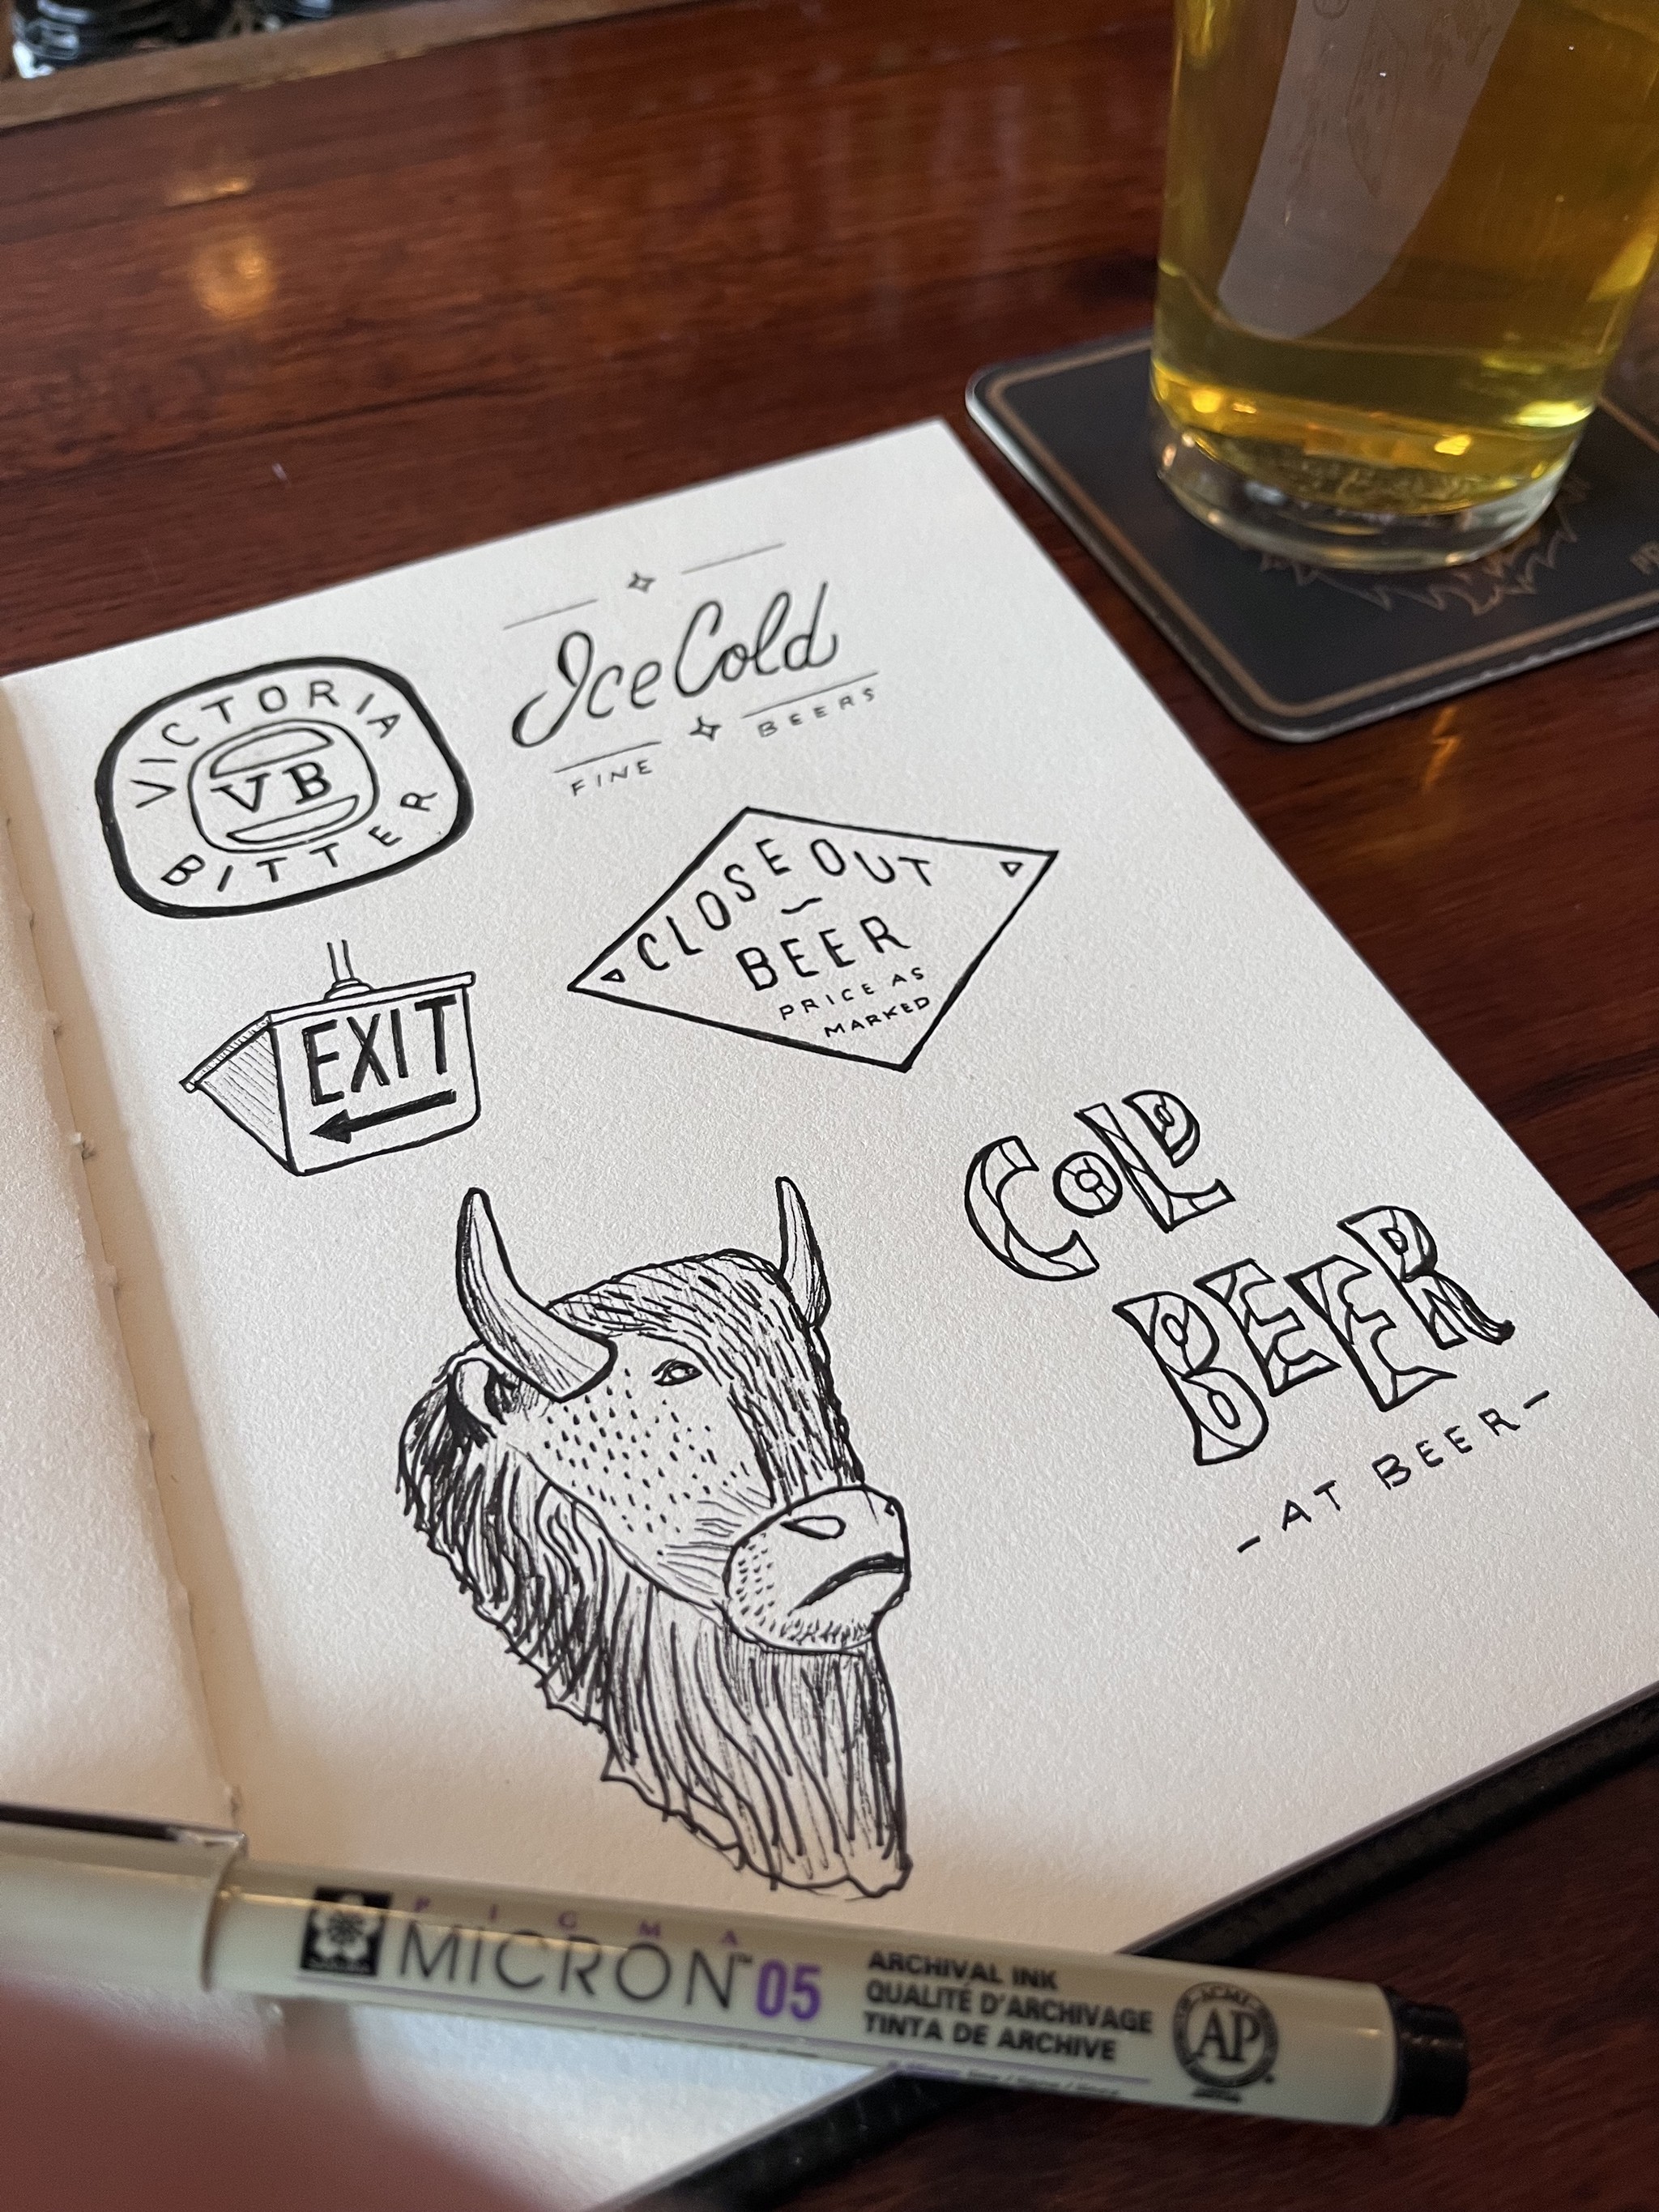 VICTORIA
VB
BITTER
Ice Cold
FINE BEERS
CLOSE OUT
BEER
PRICE AS
MARKED
EXIT
COLD
BEER
- AT BEER -
PIGMA
MICRON™ 05
ARCHIVAL INK
QUALITÉ D'ARCHIVAGE
TINTA DE ARCHIVE
ACMI
AP